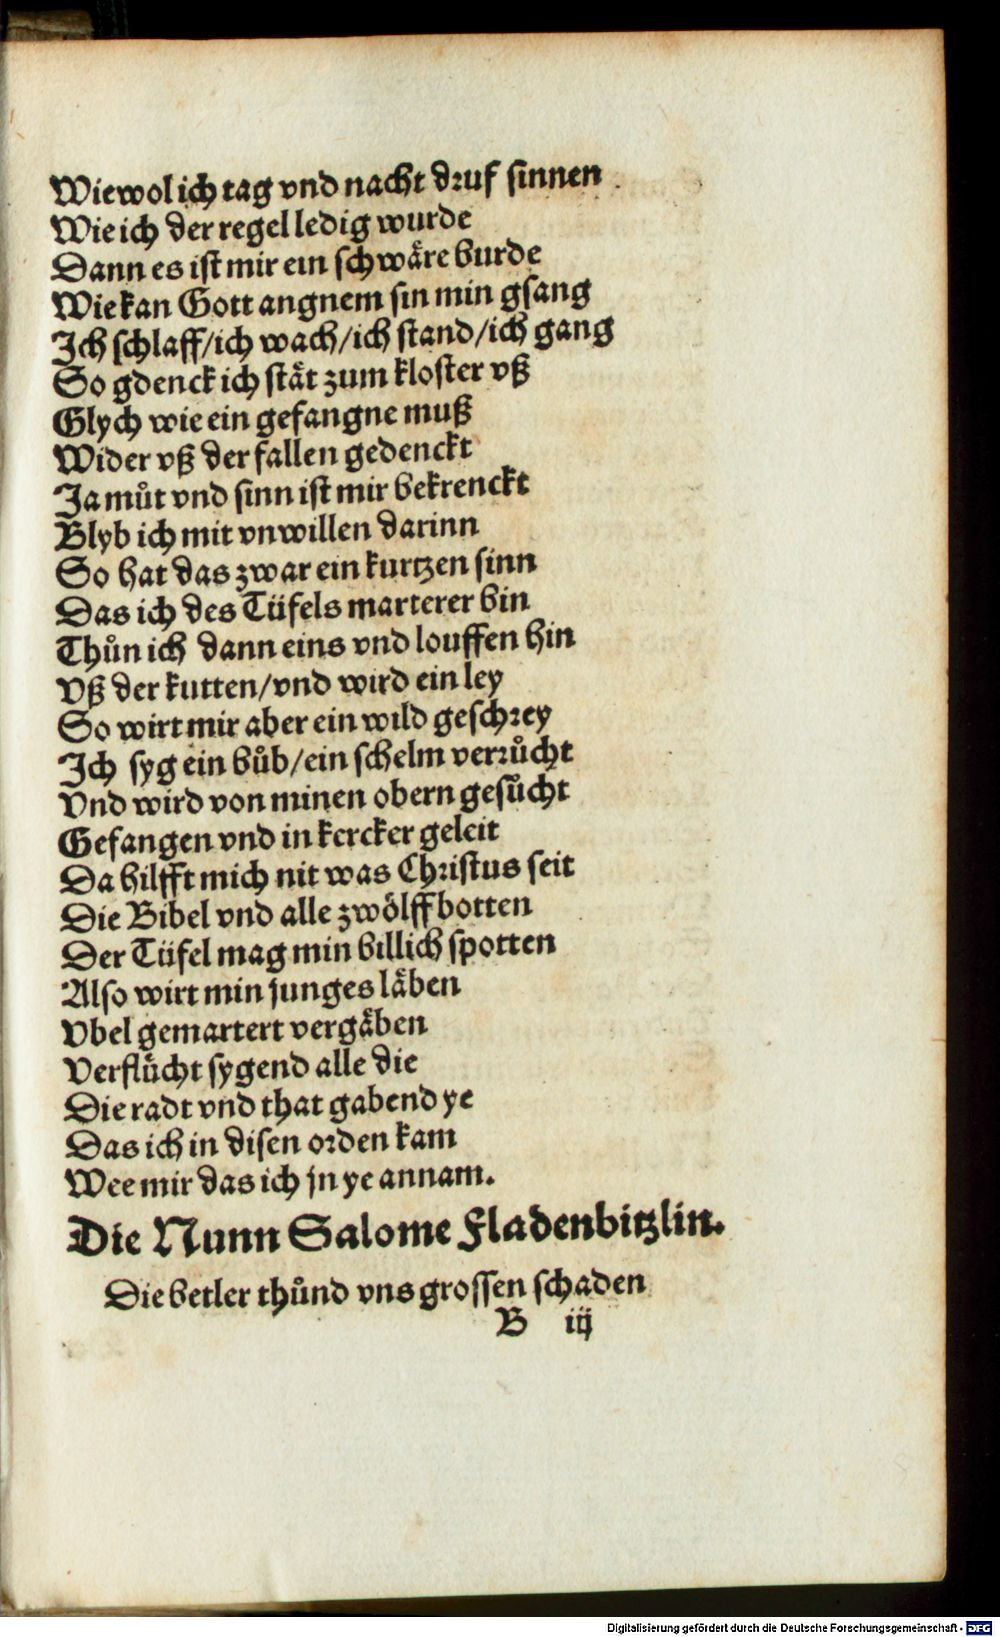 Wiewol ich tag vnd nacht druf sinnen
Wie ich der regel ledig wurde
Dann es ist mir ein schwåre burde
Wie kan Gott angnem sin min gsang
Ich schlaff/ich wach/ich stand/ich gang
So gdenck ich ståt zum kloster vß
Glych wie ein gefangne muß
Wider vß der fallen gedenckt
Ja můt vnd sinn ist mir bekrenckt
Blyb ich mit vnwillen darinn
So hat das zwar ein kurtzen sinn
Das ich des Tüfels marterer bin
Thůn ich dann eins vnd louffen hin
Vß der kutten/vnd wird ein ley
So wirt mir aber ein wild geschrey
Ich syg ein bůb/ein schelm verrůcht
Vnd wird von minen obern gesůcht
Gefangen vnd in kercker geleit
Da hilfft mich nit was Christus seit
Die Bibel vnd alle zwölffbotten
Der Tüfel mag min billich spotten
Also wirt min junges låben
Vbel gemartert vergåben
Verflůcht sygend alle die
Die radt vnd that gabend ye
Das ich in disen orden kam
Wee mir das ich jn ye annam.
Die Nunn Salome Fladenbitzlin.
Die betler thůnd vns grossen schaden
B iij
Digitalisierung gefördert durch die Deutsche Forschungsgemeinschaft - DFG